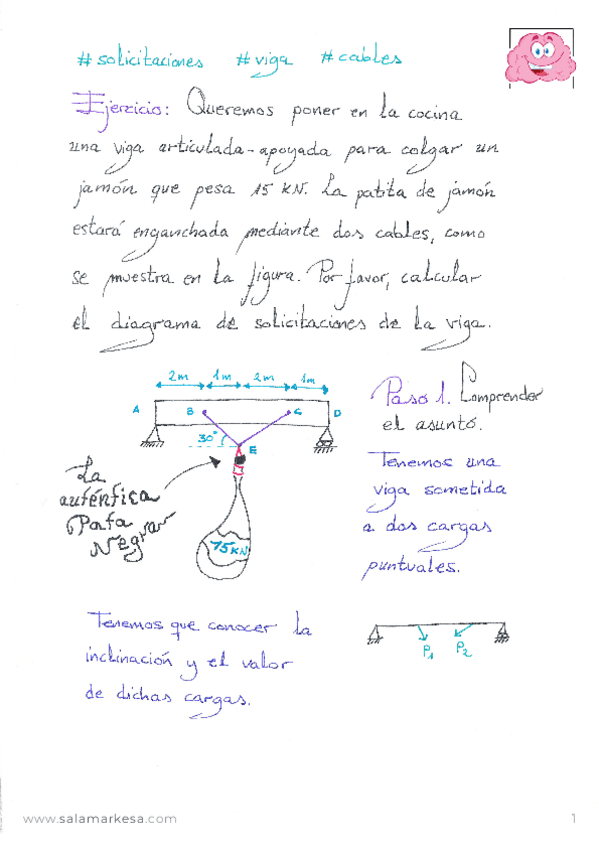 #solicitaciones #viga #cables
Ejercicio: Queremos poner en la cocina
una viga articulada-apoyada para colgar un
jamón que pesa 15 KN. La patita de jamón
estará enganchada mediante dos cables, como
se muestra en la figura. Por favor, calcular
el diagrama de solicitaciones de la viga.
2m 1m 2m 1m
A B C D
30° E
La
auténtica
Pata
Negra
15 KN
Paso 1. Comprender
el asunto.
Tenemos una
viga sometida
a dos cargas
puntuales.
Tenemos que conocer la
inclinación y el valor
de dichas cargas.
P1 P2
www.salamarkesa.com 1